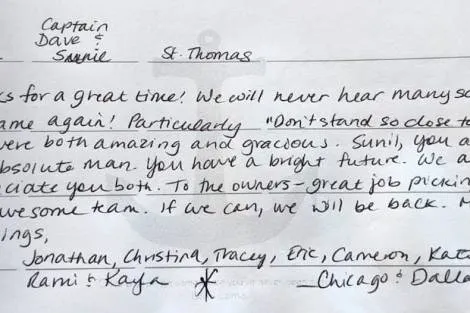 Captain
Dave &
St. Thomas
ks for a great time! We will never hear many so
ame again! Particularly "Don't stand so close to
ere both amazing and gracious. Sunil, you a
bsolute man. You have a bright future. We a
ciate you both. To the owners - great job pickin
wesome team. If we can, we will be back. M
ings,
Jonathan, Christina, Tracey, Eric, Cameron, Kat
Rami & Kaya * - Chicago & Dalla